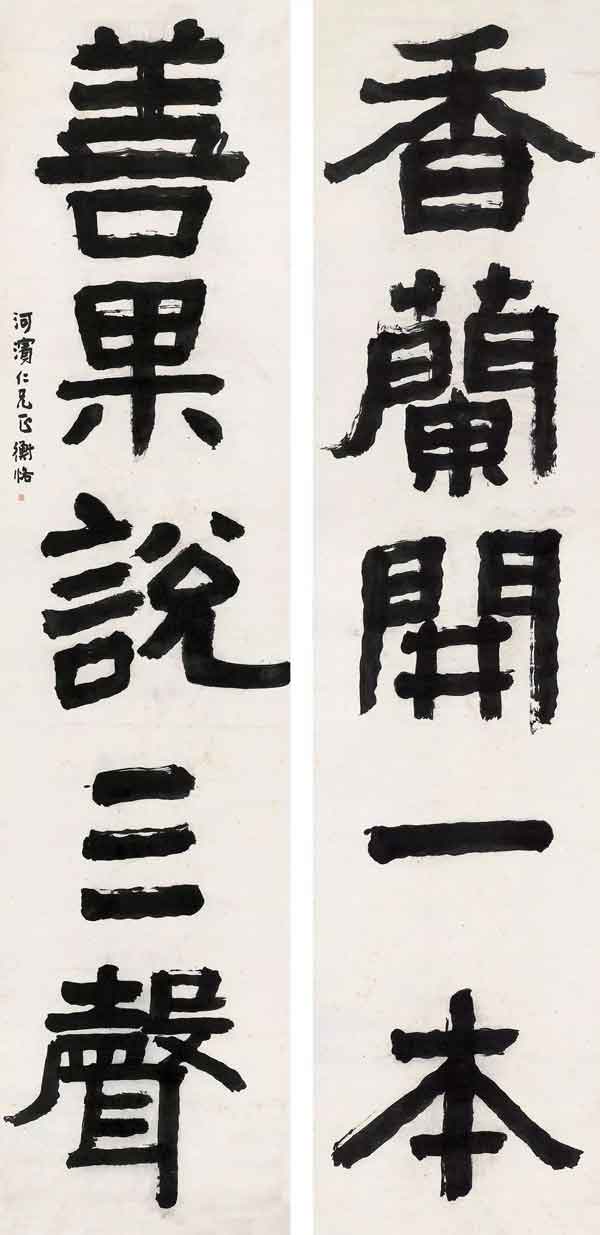 香蘭開一本
善果說三聲
河濱仁兄正 衡恪